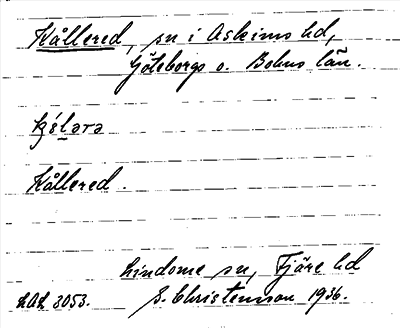 Kållered, sn i Askims hd,
Göteborgs o. Bohus län.
Kållered.
Lindome sn, Fjäre hd
S. Christenson 1936.